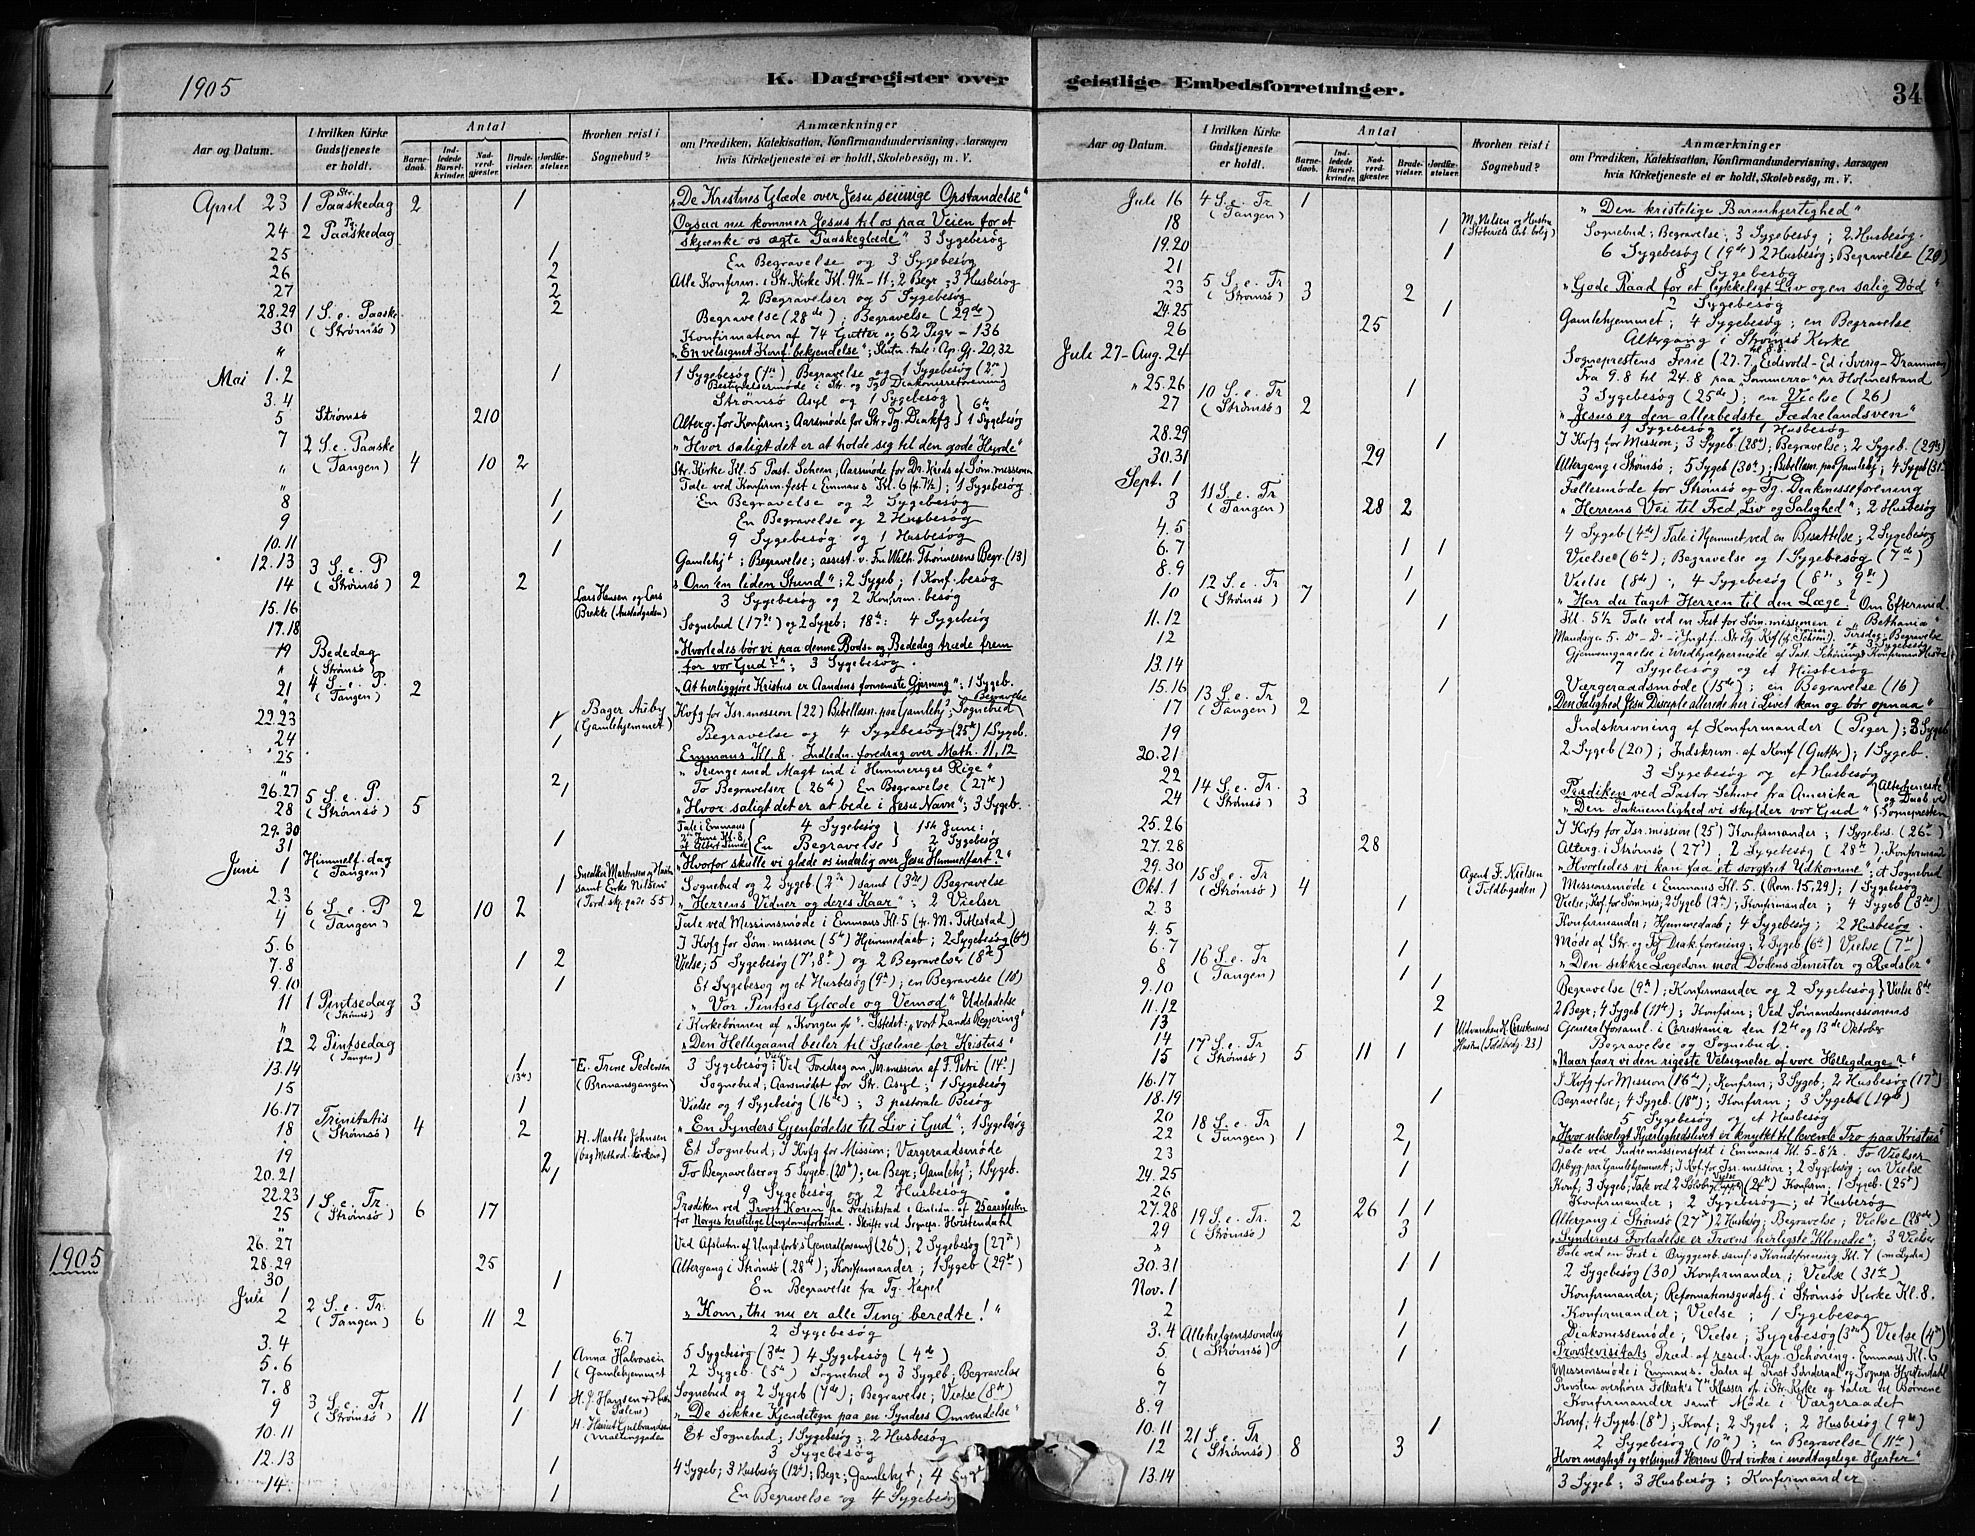 1905
K. Dagregister over
Aar og Datum.
I hvilken Kirke Gudstjeneste er holdt.
Antal
Barnedaab.
Indledede Barselkvinder.
Nadverdgjæster.
Brudevielser.
Jordfæstelser.
Hvorhen reist i Sognebud?
Anmærkninger
om Prædiken, Katekisation, Konfirmandundervisning, Aarsagen
hvis Kirketjeneste ei er holdt, Skolebesøg, m. V.
April 23 1 Paaskedag Str. 2 1 „De Kristnes Glæde over Jesu seierrige Opstandelse"
Ogsaa nu kommer Jesus til os paa Veien for at
24 2 Paaskedag Tg. skjænke os ægte Paaskeglæde" 3 Sygebesøg
25 1 En Begravelse og 3 Sygebesøg
26 2 Alle Konfirm. i Str. Kirke Kl. 9½-11; 2 Begr.; 3 Husbesøg
27 2 2 Begravelser og 5 Sygebesøg
28.29 1 S. e. Paaske 2 Begravelse (28de); Begravelse (29de)
30 (Strømsø) Konfirmation af 74 Gutter og 62 Piger - 136
" „En velsignet Konf. bekjendelse"; Slutn. tale: Ap. G. 20,32
Mai 1.2 1 1 Sygebesøg (1ste) Begravelse og 1 Sygebesøg (2den)
Bestyrelsesmøde i Str. og Tg. Diakonisseforening
3.4 Strømsø Asyl og 1 Sygebesøg
5 Strømsø 210 Alterg. for Konfirm; Aarsmøde for Str. Tg. Diakfg 1 Sygebesøg
7 2 S. e. Paaske „Hvor saligt det er at holde sig til den gode Hyrde"
" (Tangen) 4 10 2 Str. Kirke Kl. 5 Past. Scheen; Aarsmøde for Dr. Kreds af Søm. missionen
" Tale ved Konfirm. fest i Emmaus Kl. 6; 1 Sygebesøg
8 1 En Begravelse og 2 Sygebesøg
9 1 En Begravelse og 2 Husbesøg
10.11 9 Sygebesøg og 1 Husbesøg
12.13 3 S. e. P 1 Gamlehj; Begravelse; assist. v. Frk. Wilh. Thornesens Begr. (13)
14 (Strømsø) 2 2 „Om en liden Stund"; 2 Sygeb; 1 Konf. besøg
15.16 Lars Hansen og Lars Brekke 3 Sygebesøg og 2 Konfirm. besøg
17.18 Sognebud (17de) og 2 Sygeb; 18de: 4 Sygebesøg
19 Bededag „Hvorledes bør vi paa denne Bods- og Bededag træde frem
" (Strømsø) for vor Gud?"; 3 Sygebesøg.
21 4 S. e. P. (Tangen) 2 „At herliggjøre Kristus er Aandens fornemste Gjerning"; 1 Sygeb.
22.23 Bager Auby (Gamlehjemmet) 1 Kvfg for Isr. mission (22) Bibellæsn. paa Gamlehj; Sognebud Begravelse
24 1 Begravelse og 4 Sygebesøg (25de) 1 Sygeb.
25 Emmaus Kl. 8. Indledn. foredrag over Math. 11,12
" „Trænge med Magt ind i Himmeriges Rige"
26.27 5 S. e. P. 2, To Begravelser (26de) En Begravelse (27de)
28 (Strømsø) 5 „Hvor saligt det er at bede i Jesu Navn"; 3 Sygeb.
29.30 4 Sygebesøg 1ste Juni:
31 1 En Begravelse 2 Sygebesøg
Juni 1 Himmelf. dag (Tangen) „Hvorfor skulle vi glæde os inderlig over Jesu Himmelfart?"
2.3 1 Sognebud og 2 Sygeb (2den) samt (3die) Begravelse
4 6 S. e. P (Tangen) 2 10 2 „Herrens Vidner og deres Kaar"; 2 Vielser
Tale ved Missionsmøde i Emmaus Kl. 5
5.6 I Kvfg for Søm. mission (5te) Hjemmedaab; 2 Sygebesøg (6te)
7.8 1 2 Vielse; 5 Sygebesøg og 2 Begravelser (8de)
9.10 1 Et Sygebesøg og et Husbesøg (9de); en Begravelse (10)
11 1 Pintsedag (Strømsø) 3 „Vor Pintses Glæde og Vemod" Udeladelse
" i Kirkebønnen af „Kongen". Istedet: „vort Lands Regjering"
12 2 Pintsedag (Tangen) „Den Helligaand beiler til Sjælene for Kristus"
13.14 1 (13de) E. Trine Pedersen 3 Sygebesøg; Ved Foredrag om Isr. mission af F. Petri (14de)
15 Sognebud; Aarsmødet for Str. Asyl; 1 Sygebesøg
16.17 1 Vielse og 1 Sygebesøg (16de); 3 pastorale Besøg
18 Trinitatis (Strømsø) 4 2 „En Synders Gjenfødelse til Liv i Gud"; 1 Sygebesøg
19 H. Marthe Johnsen Et Sognebud; I Kvfg for Mission; Værgeraadsmøde
20.21 2, To Begravelser og 5 Sygeb. (20de); en Begr; Gamlehj; 1 Sygeb.
22.23 9 Sygebesøg og 2 Husbesøg
25 1 S. e. Tr. (Strømsø) 6 17 Prædiken ved Provst Koren fra Fredrikstad i Anledn. af Aarsfesten
" for Norges kristelige Ungdomsforbund. Skrifte ved Sognepr. Hvistendahl
26.27 Ved Afslutn. af Ungd. forb's Generalforsaml (26de); 2 Sygebesøg (27de)
28.29 25 Altergang i Strømsø (28de); Konfirmander; 1 Sygeb (29de)
30 1 En Begravelse fra Tg. Kapel
Juli 1
2 2 S. e. Tr. (Tangen) 6 11 2 „Kom, thi nu er alle Ting beredte!"
3.4 2 Sygebesøg
5.6 6.7 Anna Halvorsen (Gamlehjemmet) 5 Sygebesøg (3de) 4 Sygebesøg (4de)
1 2 Sygeb. (5te) Sognebud og 3 Sygeb; Begravelse
7.8 1 1 Sognebud og 2 Sygeb (7de); Begravelse; Vielse (8de)
9 3 S. e. Tr (Strømsø) 11 1 „De sikkre Kjendetegn paa en Synders Omvendelse"
10.11 Et Sognebud; 1 Sygebesøg; 2 Husbesøg
12.13 1 3 Sygebesøg
4 Sygeb; 3 Husbesøg (12te); Begr; Gamlehj; 4 Syg
14 1 En Begravelse og 4 Sygebesøg
1905
geistlige Embedsforretninger.
34
Aar og Datum.
I hvilken Kirke Gudstjeneste er holdt.
Antal
Barnedaab.
Indledede Barselkvinder.
Nadverdgjæster.
Brudevielser.
Jordfæstelser.
Hvorhen reist i Sognebud?
Anmærkninger
om Prædiken, Katekisation, Konfirmandundervisning, Aarsagen
hvis Kirketjeneste ei er holdt, Skolebesøg, m. V.
Juli 16 4 S. e. Tr (Tangen) 1 „Den kristelige Barmhjertighed"
18 1 M. Nilsen og Hustru Sognebud; Begravelse; 3 Sygebesøg; 2 Husbesøg.
19.20 1 6 Sygebesøg (19de) 2 Husbesøg; Begravelse (20)
21 8 Sygebesøg
23 5 S. e. Tr (Strømsø) 3 2 „Gode Raad for et lykkeligt Liv og en salig Død"
24.25 1 2 Sygebesøg
26 25 Gamlehjemmet; 4 Sygebesøg; en Begravelse
Altergang i Strømsø Kirke
Juli 27-Aug. 24 Sogneprestens Ferie (27.7 til 8.8. Eidsvold-Ed i Sverig-Drammen)
Fra 9.8 til 24.8 paa „Sommerro" pr Holmestrand
" 25.26 1 3 Sygebesøg (25de); en Vielse (26)
27 10 S. e. Tr (Strømsø) 2 „Jesus er den allerbedste Fædrelandsven"
1 Sygebesøg og 1 Husbesøg
28.29 1 I Kvfg for Mission; 3 Sygeb (28de); Begravelse; 2 Sygeb. (29de)
30.31 29 Altergang i Strømsø; 5 Sygeb (30te); Bibellæsn. paa Gamlehj; 4 Sygeb (31te)
Sept. 1 Fællesmøde for Strømsø og Tg. Diakonisseforening
3 11 S. e. Tr (Tangen) 28 2 „Herrens Vei til Fred, Liv og Salighed"; 2 Husbesøg
4.5 4 Sygeb (4de) Tale i Hjemmet ved en Bisættelse; 2 Sygebesøg
6.7 1 1 Vielse (6te); Begravelse og 1 Sygebesøg (7de)
8.9 1 Vielse (8de); 4 Sygebesøg (8de; 9de)
10 12 S. e. Tr (Strømsø) 7 1 „Har du taget Herren til din Læge?" Om Eftermid.
11.12 1 Kl. 5½ Tale ved en Fest for Søm. missionen i „Bethania"
12
13.14 7 Sygebesøg og et Husbesøg
15.16 1 Værgeraadsmøde (15de); en Begravelse (16)
17 13 S. e. Tr (Tangen) 2 „Den Salighed Jesu Disciple allerede her i Livet kan og bør opnaa"
19 Indskrivning af Konfirmander (Piger); 3 Sygeb
20.21 2 Sygeb (20); Indskrivn. af Konf (Gutter); 1 Sygeb.
22 3 Sygebesøg og et Husbesøg
24 14 S. e. Tr. (Strømsø) 3 Prædiken ved Pastor Schive fra Amerika Altertjeneste og Daab ved Sognepresten
„Den Taknemlighed vi skylder vor Gud"
25.26 I Kvfg for Isr. mission (25) Konfirmander; 1 Sygebes. (26de)
27.28 28 Alterg. i Strømsø (27de); 2 Sygebesøg (28de); Konfirmand
29.30 „Hvorledes vi kan faa et sorgfrit Udkomme"; et Sognebud
Okt. 1 15 S. e. Tr (Strømsø) 4 Agent F. Nielsen (Toldbgaden) Missionsmøde i Emmaus Kl. 5. (Rom. 15,29); 1 Sygebesøg
2.3 1 Vielse; Kvf. for Søm. mis; 2 Sygeb (2den); Konfirmander; 4 Sygeb (3die)
4.5 Konfirmander; Hjemmedaab; 4 Sygebesøg; 2 Husbesøg.
6.7 1 Møde af Str. og Tg. Diak. forening; 2 Sygeb (6te) Vielse (7de)
8 16 S. e. Tr (Tangen) 1 „Den sikkre Lægedom mod Dødens Smerter og Rædsler"
9.10 1 Begravelse (9de); Konfirmander og 2 Sygebesøg; Vielse 8de
11.12 2 2 Begr; 4 Sygeb (11te); Konfirm; Ved Sømandsmissionens
13 1 Generalforsaml. i Christiania den 12te og 13de Oktober
14 Begravelse og Sognebud.
15 17 S. e. Tr (Strømsø) 5 11 1 „Naar faar vi den rigeste Velsignelse af vore Helligdage?"
16.17 I Kvfg for Mission (16de); Konfirm; 3 Sygeb; 2 Husbesøg (17de)
18.19 1 Begravelse; 4 Sygeb. (18de); Konfirm; 3 Sygebes (19de)
20 5 Sygebesøg og et Husbesøg
22 18 S. e. Tr (Tangen) 1 2, „Hvor uløseligt Kjærlighedslivet er knyttet til levende Tro paa Kristus"
23 1 Tale ved Indremissionsfest i Emmaus Kl. 5-8½. To Vielser
24.25 1 Opbyg. paa Gamlehjemmet; I Kvf. for Isr. mission; 2 Sygebesøg; en Vielse
26 Konfirmander; 2 Sygebesøg; et Husbesøg
27.28 26 1 1 Altergang i Strømsø (27de) 2 Husbesøg; Begravelse; Vielse (28de)
29 19 S. e. Tr. (Strømsø) 2 3 „Syndernes Forladelse er Troens herligste Klenodie"; 3 Vielser
" Tale ved en Fest i Byggearb. samf.s Kvindeforening Kl. 7 (om Lydia)
30.31 1 1 2 Sygebesøg (30) Konfirmander; Vielse (31te)
Nov. 1 Konfirmander; Reformationsgudstj. i Strømsø Kirke Kl. 8.
2 1 Konfirmander; Vielse; 1 Sygebesøg
3.4 1 Diakonissemøde; Vielse; Sygebesøg (3de) Vielse (4de)
5 Allehelgenssondag (Strømsø) 1 Provstevisitats Præd. af resid. Kap. Schöning. Emmaus Kl. 6
6 Missionsmøde i Emmaus. Taler af Provst Sønderaal og Sognepr. Hvistendahl
7 Provsten overhører Folkesk's 7de Klasser i Str. Kirke og taler til Børnene
8.9 Konfirmander samt Møde i Værgeraadet
Konf; 4 Sygeb (8de); Konf; 2 Sygeb; 2 Husbesøg (9de)
10.11 1 2 Sygebesøg (10de); en Begravelse (11te)
12 21 S. e. Tr (Strømsø) 8 3 „Hvor mægtigt og velsignet Herrens Ord virker i modtagelige Hjerter"
13.14 3 Sygeb; 3 Husbesøg; Konfirmander